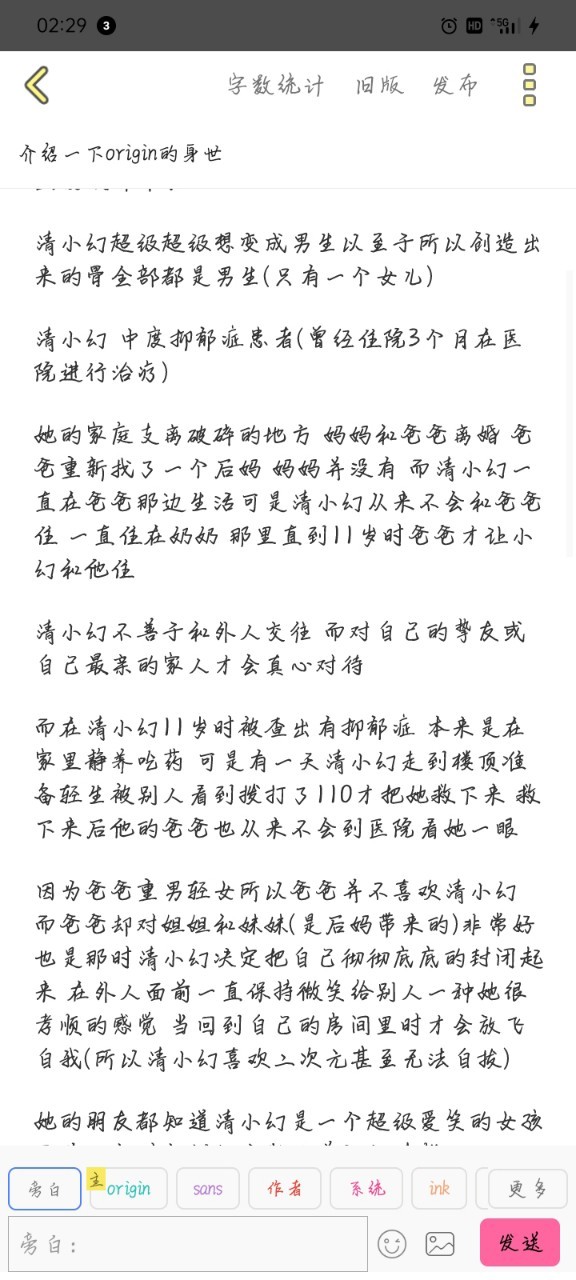 02:29 3 HD 5G
字数统计 旧版 发布
介绍一下origin的身世
清小幻超级超级想变成男生以至于所以创造出
来的骨全部都是男生(只有一个女儿)
清小幻 中度抑郁症患者(曾经住院3个月在医
院进行治疗)
她的家庭支离破碎的地方 妈妈和爸爸离婚 爸
爸重新找了一个后妈 妈妈并没有 而清小幻一
直在爸爸那边生活可是清小幻从来不会和爸爸
住 一直住在奶奶 那里直到11岁时爸爸才让小
幻和他住
清小幻不善于和外人交往 而对自己的挚友或
自己最亲的家人才会真心对待
而在清小幻11岁时被查出有抑郁症 本来是在
家里静养吃药 可是有一天清小幻走到楼顶准
备轻生被别人看到拨打了110才把她救下来 救
下来后他的爸爸也从来不会到医院看她一眼
因为爸爸重男轻女所以爸爸并不喜欢清小幻
而爸爸却对姐姐和妹妹(是后妈带来的)非常好
也是那时清小幻决定把自己彻彻底底的封闭起
来 在外人面前一直保持微笑给别人一种她很
孝顺的感觉 当回到自己的房间里时才会放飞
自我(所以清小幻喜欢二次元甚至无法自拔)
她的朋友都知道清小幻是一个超级爱笑的女孩
旁白 主 origin sans 作者 系统 ink 更多
旁白： 发送